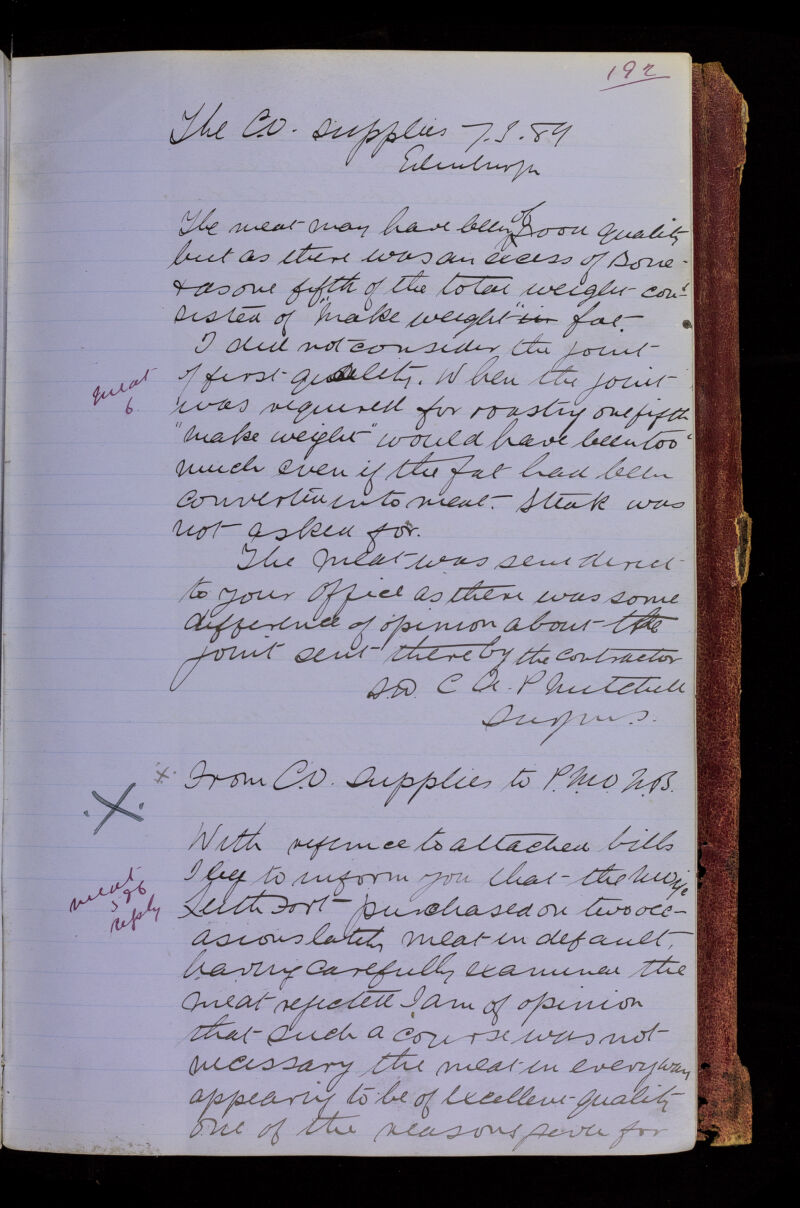 192
The C.O. Supplies 7.3.89
Edinburgh
The meat may have been of good quality
but as there was an excess of Bone -
& as one fifth of the total weight con-
sisted of "make weight" in fat.
I did not consider the joint
meat
6.
of first quality. When the joint
was required for roasting one fifth
"make weight" would have been too
much even if the fat had been
converted into meat. Steak was
not asked for.
The meat was sent direct
to your office as there was some
difference of opinion about the
joint sent thereby the contractor
sd. C A. P Mitchell
Surg M.S.
X. From C.O. Supplies to P.M.O. N.B.
.X.
With reference to attached bills
I beg to inform you that the M.O. i/c
meat
5 & 6
reply
Leith Fort purchased on two occ-
asions lately meat in default,
having carefully examined the
meat rejected I am of opinion
that such a course was not
necessary the meat in every way
appearing to be of excellent quality
one of the reasons given for